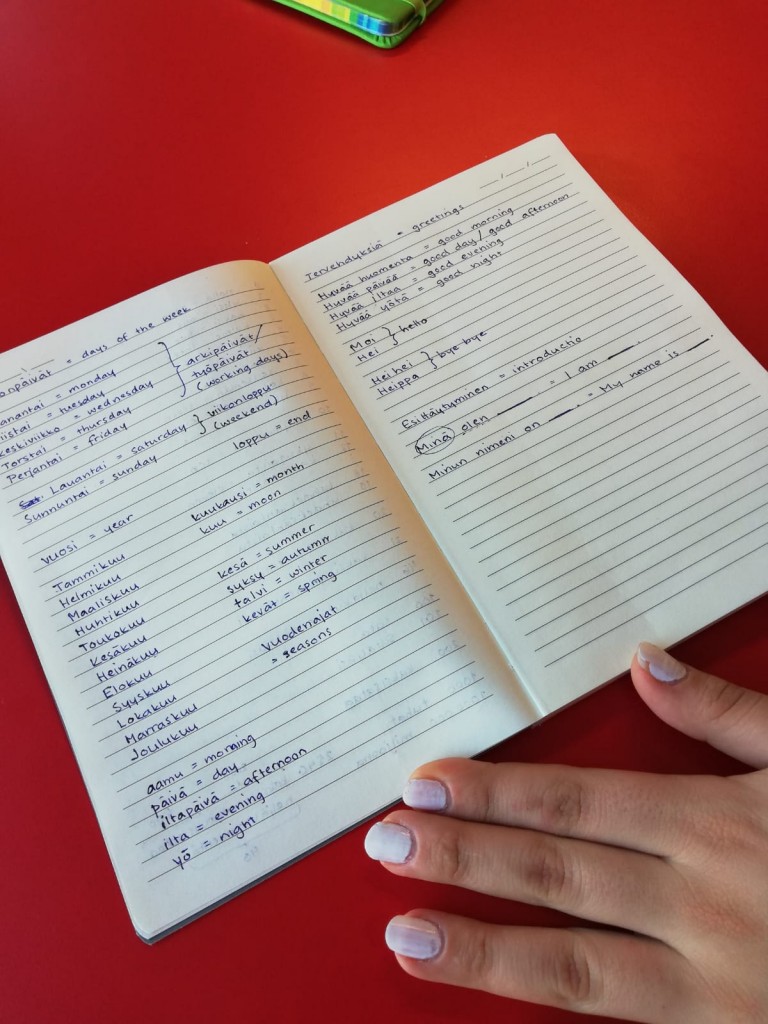 onpäivät = days of the week
anantai = monday
iistai = tuesday
keskiviikko = wednesday
Torstai = thursday
Perjantai = friday
arkipäivät/
työpäivät
(working days)
Lauantai = saturday
Sunnuntai = sunday
viikonloppu
(weekend)
loppu = end
vuosi = year
kuukausi = month
kuu = moon
Tammikuu
Helmikuu
Maaliskuu
Huhtikuu
Toukokuu
Kesäkuu
Heinäkuu
Elokuu
Syyskuu
Lokakuu
Marraskuu
Joulukuu
kesä = summer
syksy = autumn
talvi = winter
kevät = spring
Vuodenajat
= seasons
aamu = morning
päivä = day
iltapäivä = afternoon
ilta = evening
yö = night
Tervehdyksiä = greetings
Hyvää huomenta = good morning
Hyvää päivää = good day / good afternoon
Hyvää iltaa = good evening
Hyvää yötä = good night
Moi
Hei
hello
Hei hei
Heippa
bye bye
Esittäytyminen = introductio
Minä olen ____ = I am ____.
Minun nimeni on ____. = My name is ____.